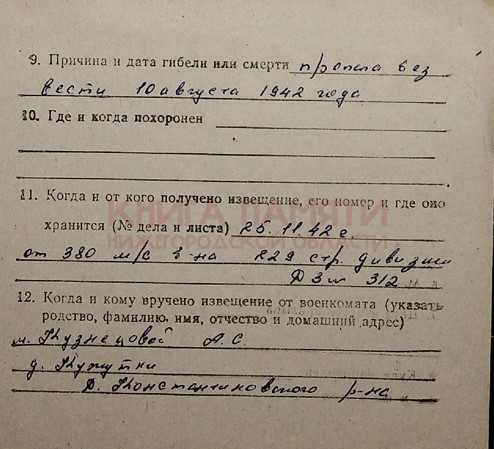 9. Причина и дата гибели или смерти пропала без
вести 10 августа 1942 года
10. Где и когда похоронен
11. Когда и от кого получено извещение, его номер и где оно
хранится (№ дела и листа) 25.11.42 г.
КНИГА ПАМЯТИ
НИЖЕГОРОДСКОЙ ОБЛАСТИ
от 380 м/с б-на 229 стр. дивизии
Д 3 л 312
12. Когда и кому вручено извещение от военкомата (указать
родство, фамилию, имя, отчество и домашний адрес)
м. Кузнецовой А.С.
д.
Д. Константиновского р-на